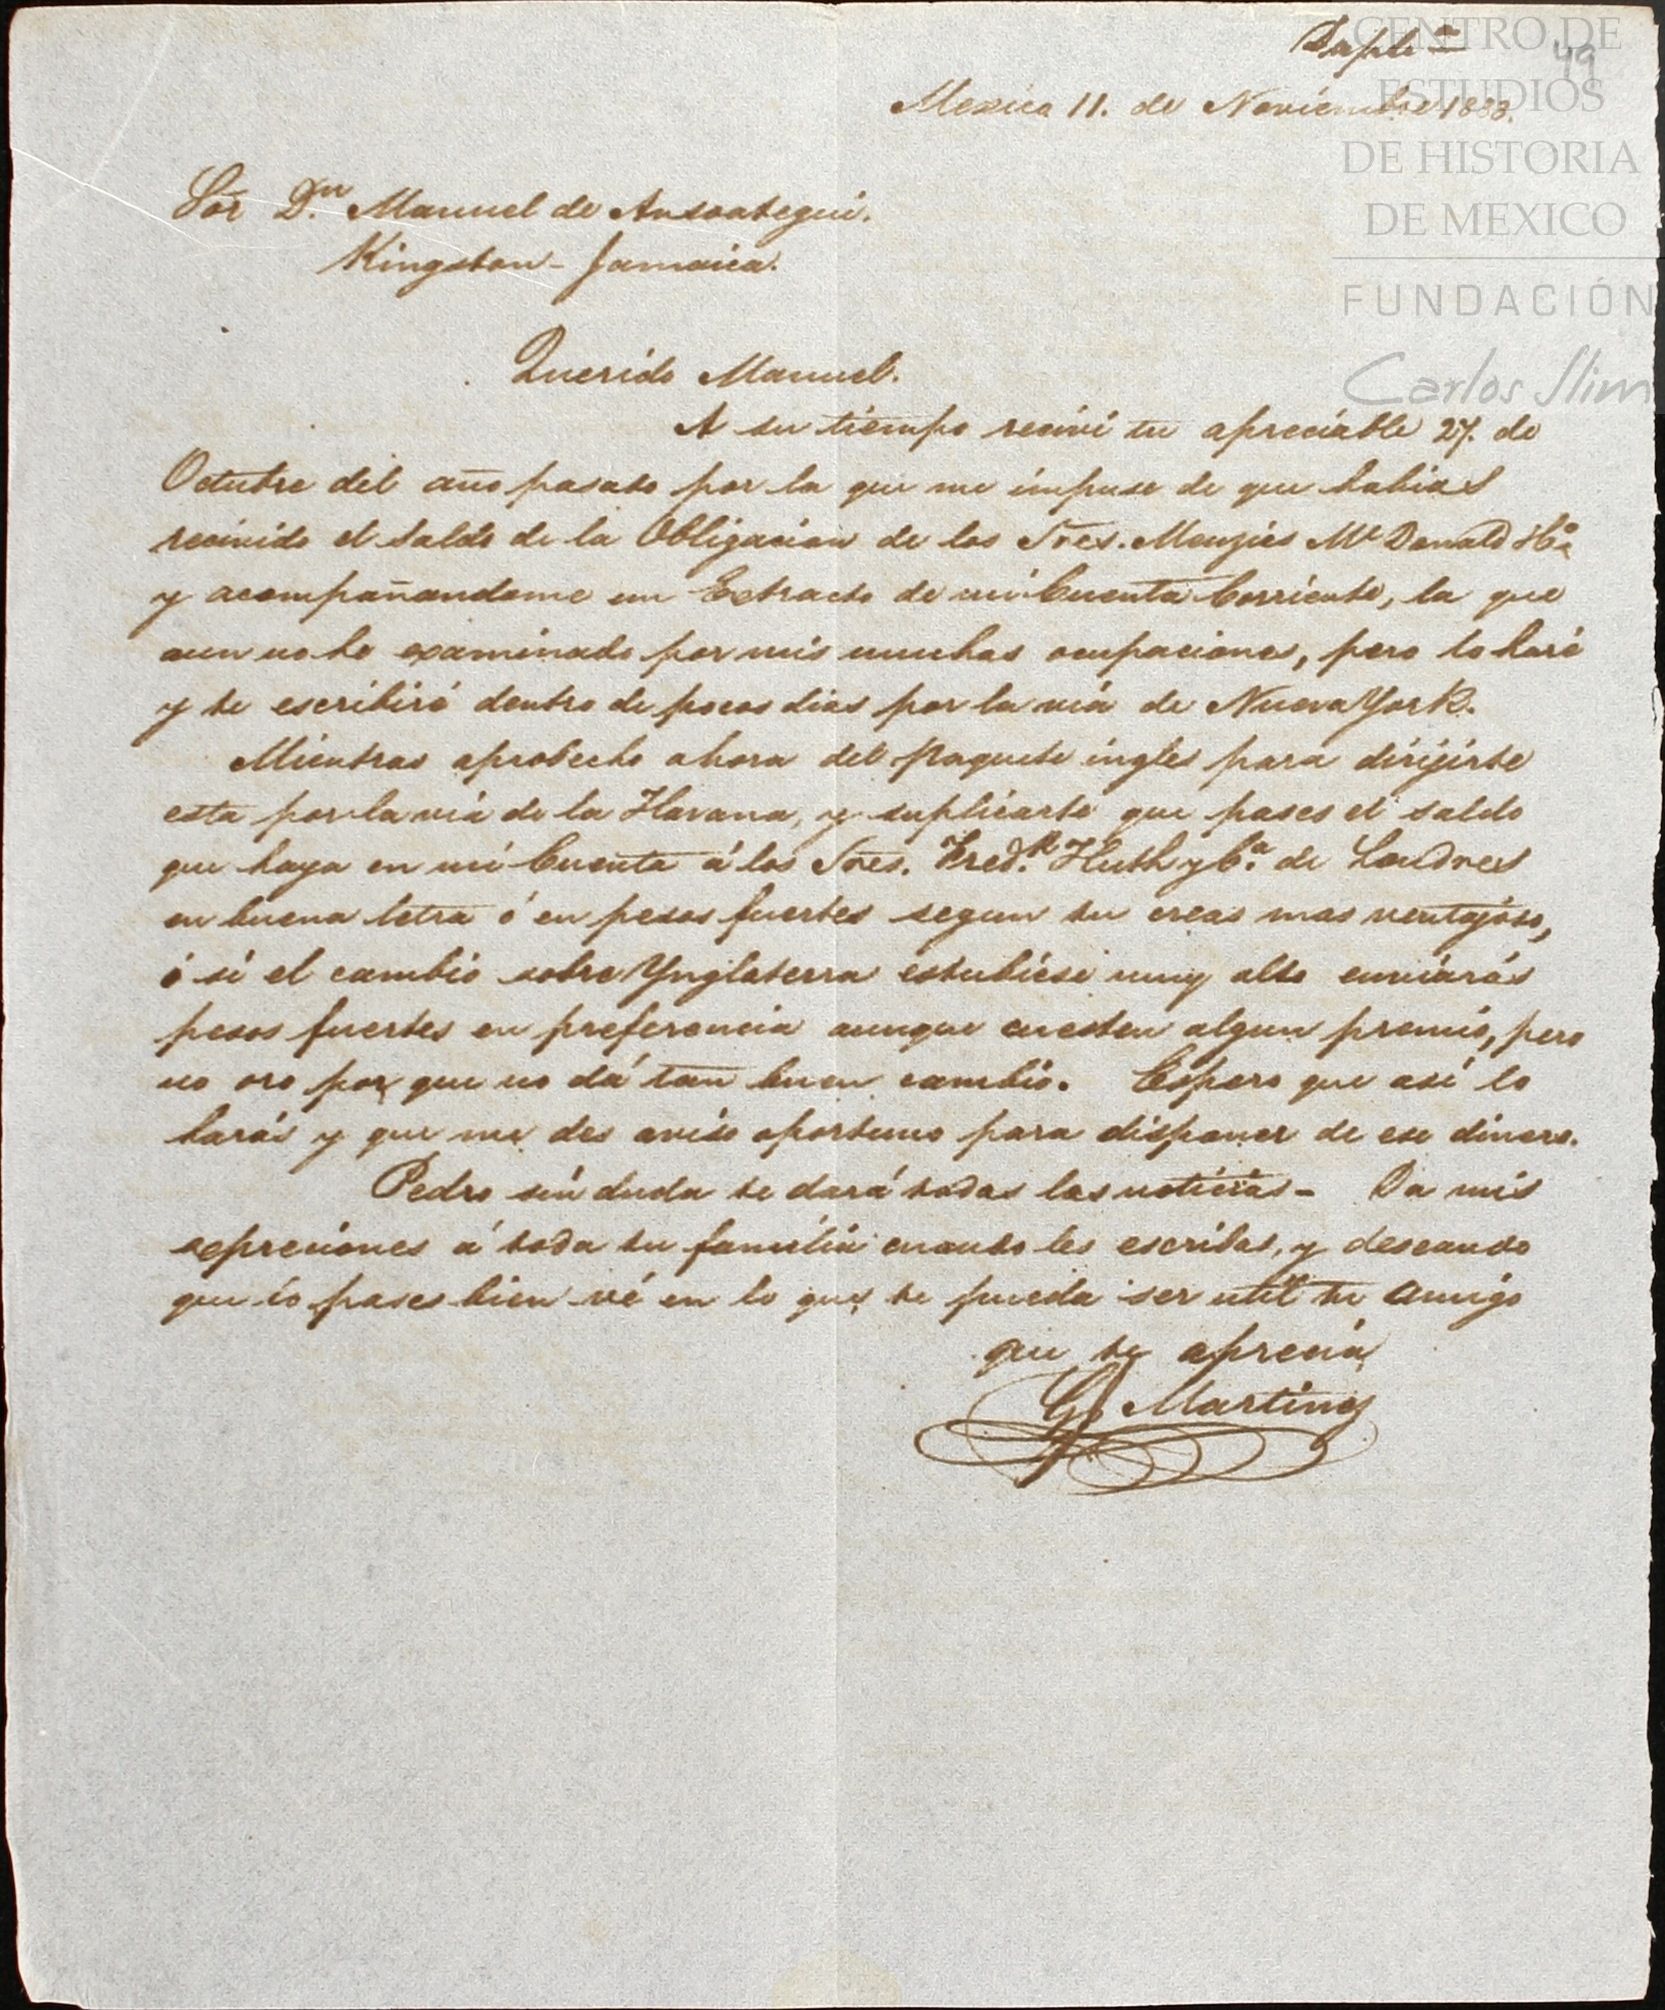 Duplo
49
Mexico 11. de Noviembre 1838.
Sor Dn. Manuel de Ansoategui.
Kingston - Jamaica.
Querido Manuel.
A su tiempo reciví tu apreciable 27. de
Octubre del año pasado por la que me impuse de que habias
recivido el saldo de la Obligacion de los Sres. Menzies McDonald
y acompañandome un Extracto de mi Cuenta Corriente, la que
aun no he examinado por mis muchas ocupaciones, pero lo haré
y te escribiré dentro de pocos dias por la vía de Nueva York.
Mientras aprobecho ahora del paquete ingles para dirijirte
esta por la vía de la Havana, y suplicarte que pases el saldo
que haya en mi Cuenta á los Sres. Fredk. Huth y Ca. de Londres
en buena letra ó en pesos fuertes segun tu creas mas ventajoso,
ó si el cambio sobre Ynglaterra estubiése muy alto enviarás
pesos fuertes en preferencia aunque cuesten algun premio, pero
no oro por que no dá tan buen cambio. Espero que así lo
harás y que me des aviso oportuno para disponer de ese dinero.
Pedro sin duda te dará todas las noticias - Da mis
expreciones á toda tu familia cuando les escribas, y deseando
que lo pases bien vé en lo que te pueda ser util tu amigo
que te aprecia
G. Martinez
CENTRO DE
ESTUDIOS
DE HISTORIA
DE MEXICO
FUNDACIÓN
Carlos Slim